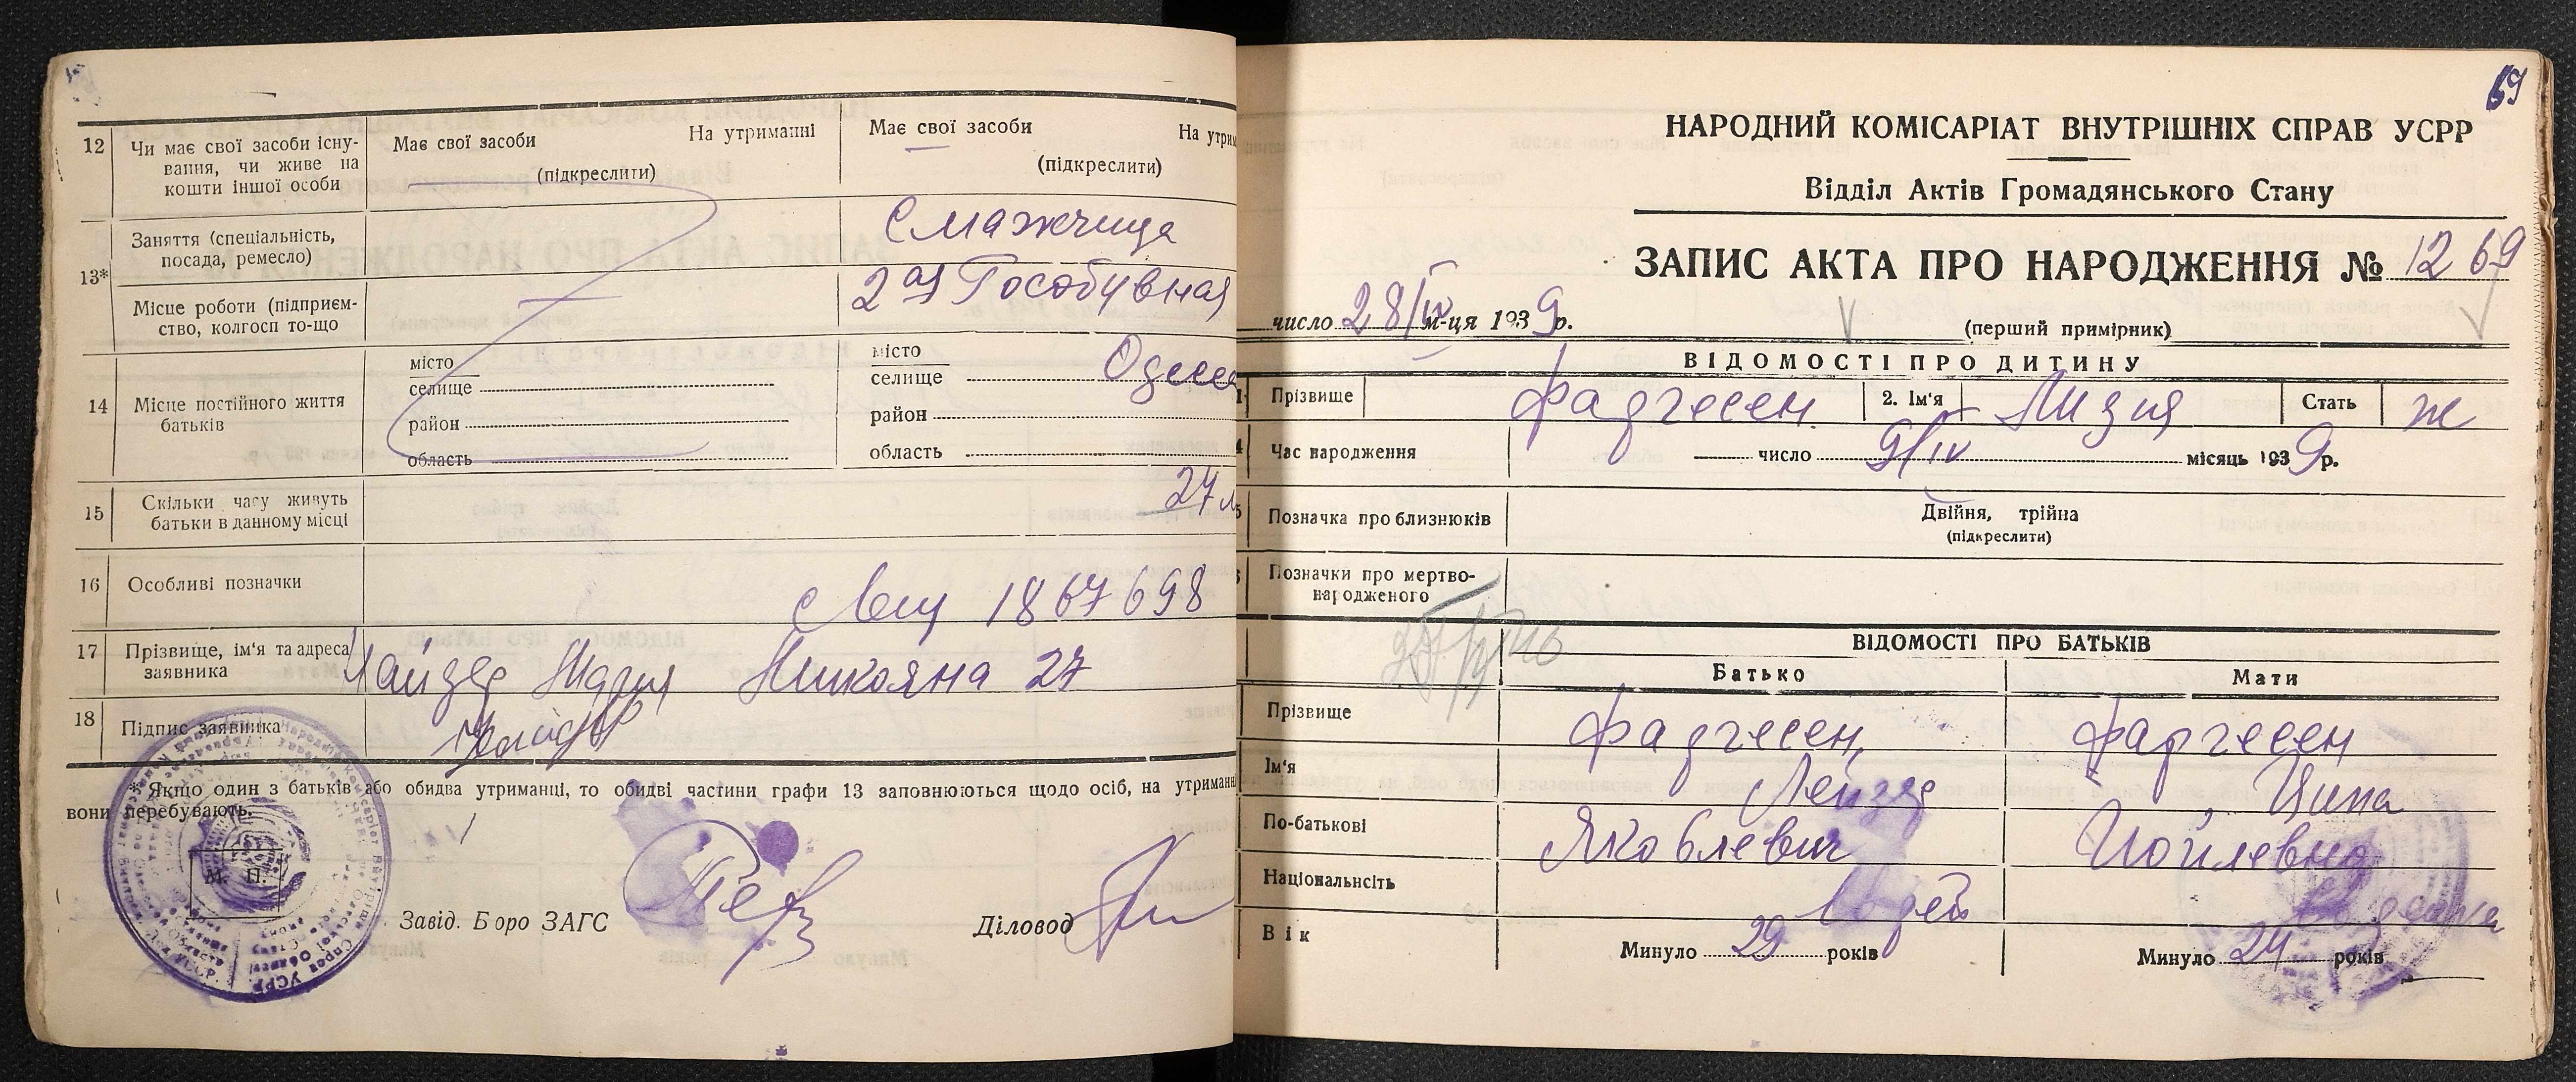 12 Чи має свої засоби існу-
вання, чи живе на
кошти іншої особи
Має свої засоби На утриманні
(підкреслити)
Має свої засоби На утрим
(підкреслити)
13*
Заняття (спеціальність,
посада, ремесло)
Смажчица
Місце роботи (підприєм-
ство, колгосп то-що
2ая Гособувная
14 Місце постійного життя
батьків
місто
селище
район
область
місто
селище Одесс
район
область
15 Скільки часу живуть
батьки в данному місці
27 л
16 Особливі позначки
1867698
17 Прізвище, ім'я та адреса
заявника
18 Підпис заявника
* Якщо один з батьків або обидва утриманці, то обидві частини графи 13 заповнюються щодо осіб, на утриманн
вони перебувають.
М. П.
Завід. Боро ЗАГС
Діловод
69
НАРОДНИЙ КОМІСАРІАТ ВНУТРІШНІХ СПРАВ УСРР
Відділ Актів Громадянського Стану
ЗАПИС АКТА ПРО НАРОДЖЕННЯ № 1269
число 28/IV м-ця 1939 р.
(перший примірник)
ВІДОМОСТІ ПРО ДИТИНУ
1 Прізвище Фаргесен 2. Ім'я Лизия Стать ж
4 Час народження число 9/IV місяць 1939 р.
5 Позначка про близнюків Двійня, трійна
(підкреслити)
Позначки про мертво-
народженого
ВІДОМОСТІ ПРО БАТЬКІВ
Батько Мати
Прізвище Фаргесен Фаргесен
Ім'я Лейзер Ципа
По-батькові Яковлевич Иойлевна
Національність
Вік Минуло 29 років Минуло 24 років